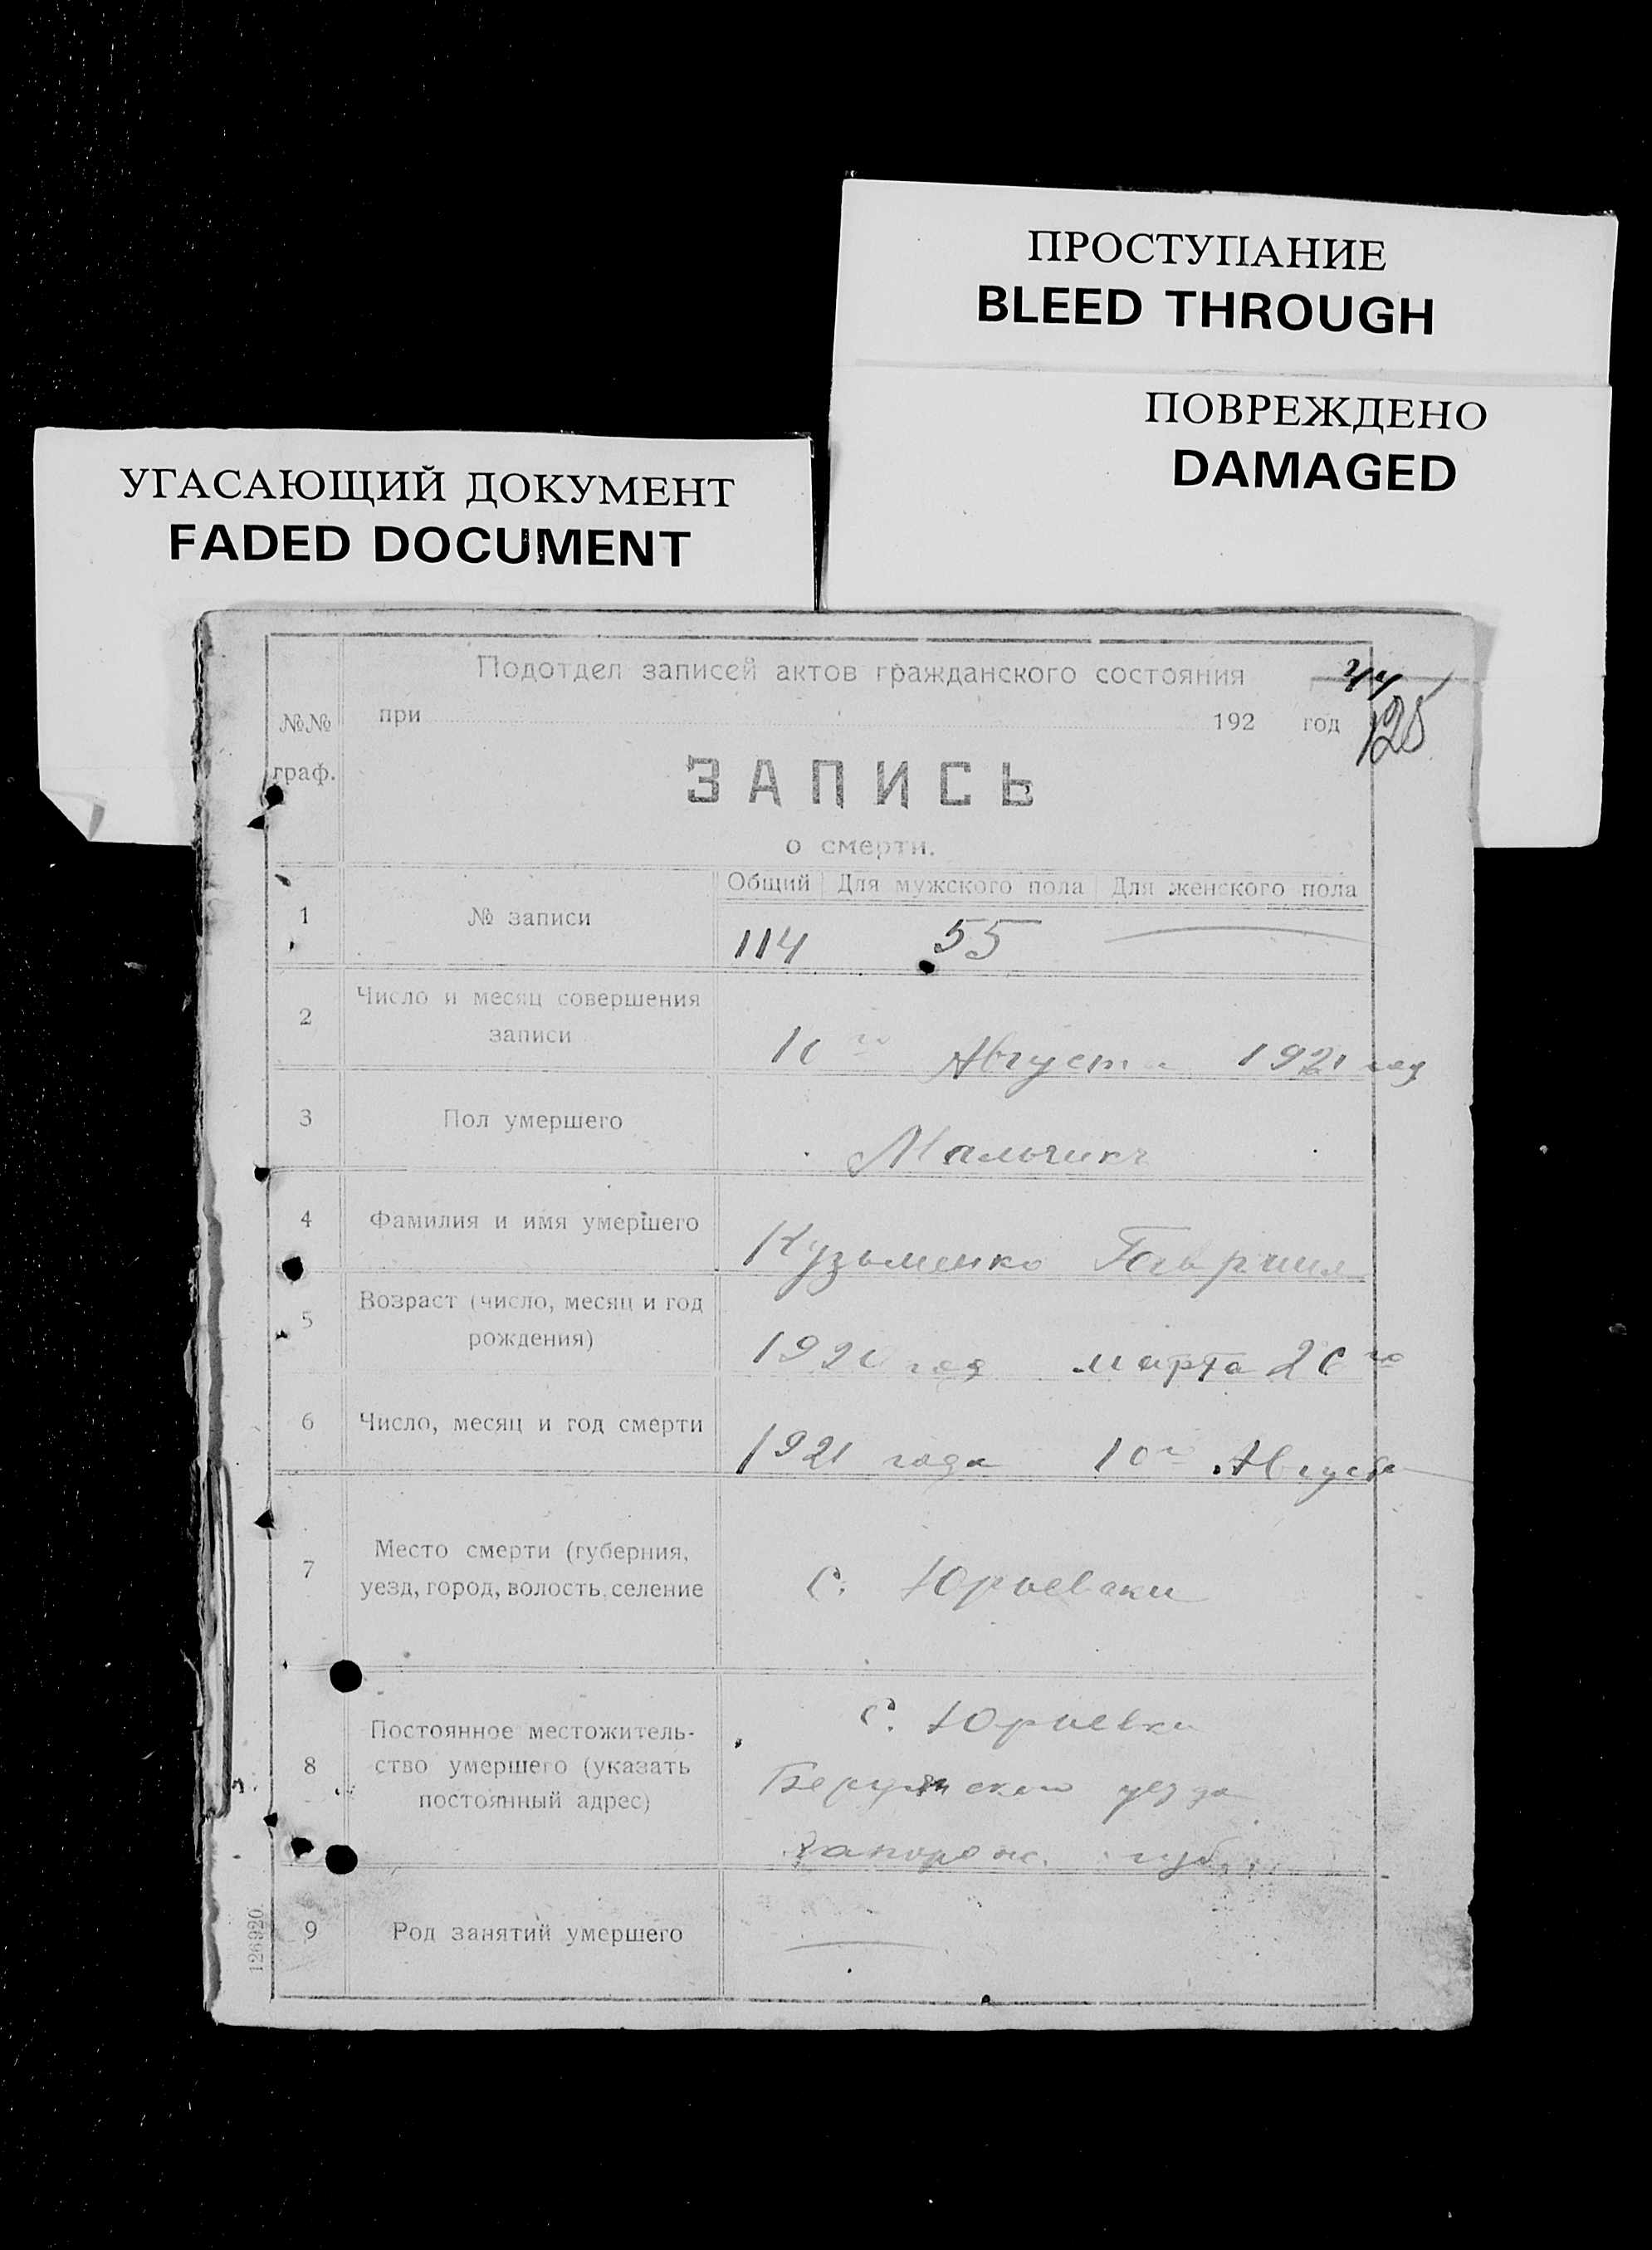 ПРОСТУПАНИЕ
BLEED THROUGH
ПОВРЕЖДЕНО
DAMAGED
УГАСАЮЩИЙ ДОКУМЕНТ
FADED DOCUMENT
Подотдел записей актов гражданского состояния
125
№№ граф.
при 192 год
ЗАПИСЬ
о смерти.
Общий Для мужского пола Для женского пола
1 № записи
114 55
2 Число и месяц совершения
записи
10го Августа 1921 год
3 Пол умершего
Мальчик
4 Фамилия и имя умершего
Кузьменко Гавриил
5 Возраст (число, месяц и год
рождения)
1920 год марта 20го
6 Число, месяц и год смерти
1921 года 10го Августа
7 Место смерти (губерния,
уезд, город, волость, селение
с. Юрьевки
8 Постоянное местожитель-
ство умершего (указать
постоянный адрес)
с. Юрьевки
Бердянского уезда
Запорож. губ.
9 Род занятий умершего
126920